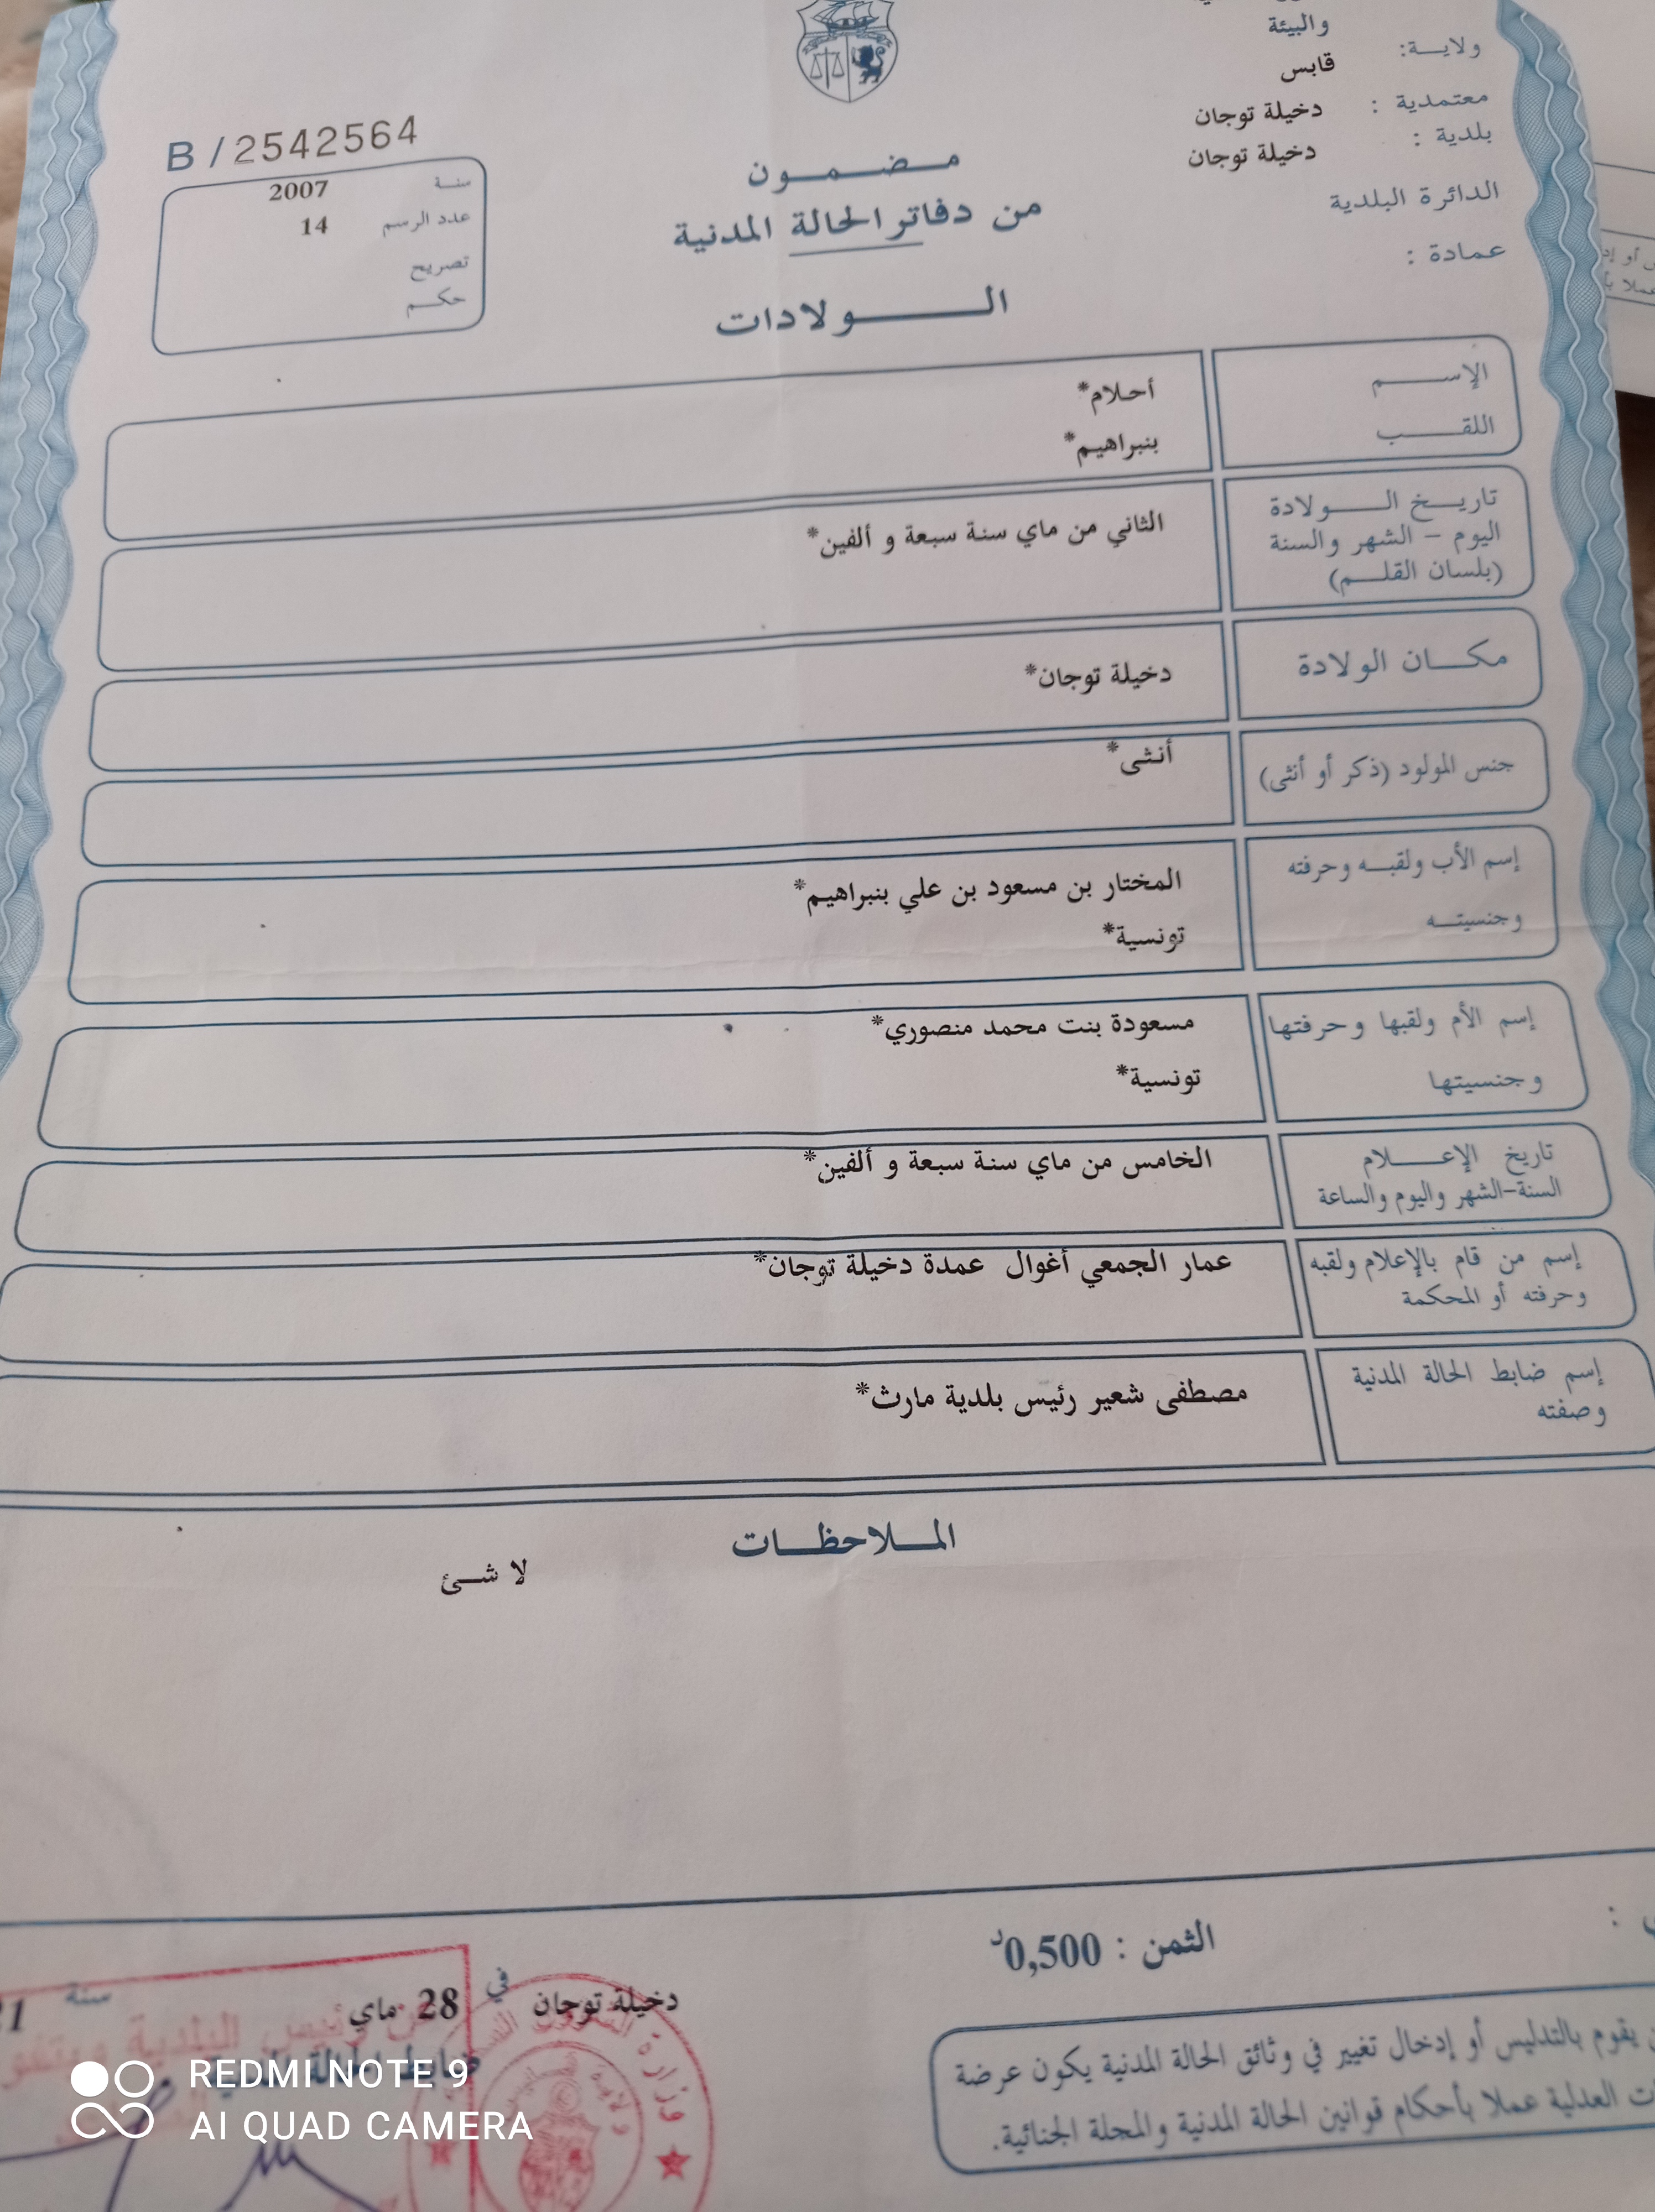 والبيئة
ولاية:
قابس
معتمدية : دخيلة توجان
بلدية : دخيلة توجان
الدائرة البلدية
عمادة :
B / 2542564
سنة 2007
عدد الرسم 14
تصريح
حكم
مضمون
من دفاتر الحالة المدنية
الولادات
الإسم أحلام*
اللقب بنبراهيم*
تاريخ الولادة
اليوم - الشهر والسنة
(بلسان القلم)
الثاني من ماي سنة سبعة و ألفين*
مكان الولادة دخيلة توجان*
جنس المولود (ذكر أو أنثى) أنثى*
إسم الأب ولقبه وحرفته المختار بن مسعود بن علي بنبراهيم*
وجنسيته تونسية*
إسم الأم ولقبها وحرفتها مسعودة بنت محمد منصوري*
وجنسيتها تونسية*
تاريخ الإعلام
السنة-الشهر واليوم والساعة
الخامس من ماي سنة سبعة و ألفين*
إسم من قام بالإعلام ولقبه
وحرفته أو المحكمة
عمار الجمعي أغوال عمدة دخيلة توجان*
إسم ضابط الحالة المدنية
وصفته
مصطفى شعير رئيس بلدية مارث*
الملاحظات
لا شئ
الثمن : 0,500د
دخيلة توجان في 28 ماي سنة
يقوم بالتدليس أو إدخال تغيير في وثائق الحالة المدنية يكون عرضة
العدلية عملا بأحكام قوانين الحالة المدنية والمجلة الجنائية.
رئيس البلدية
وزارة
REDMI NOTE 9
AI QUAD CAMERA